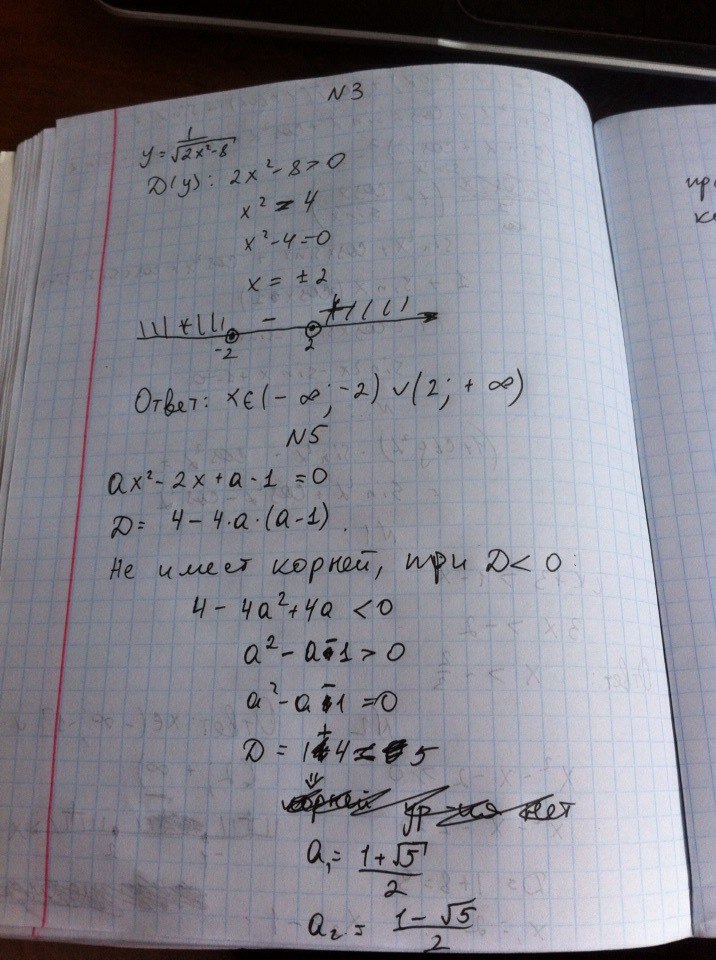 N3
y = 1/√(2x²-8)
D(y): 2x²-8>0
x² = 4
x²-4=0
x = ±2
+ - +
-2 2
Ответ: x∈(-∞;-2)∪(2;+∞)
N5
ax²-2x+a-1=0
D= 4-4·a·(a-1).
Не имеет корней, при D<0:
4-4a²+4a<0
a²-a-1>0
a²-a-1=0
D = 1+4=5
a₁= (1+√5)/2
a₂= (1-√5)/2